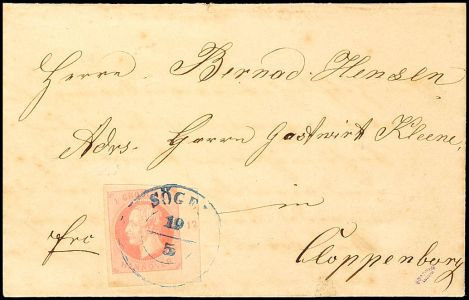 Herrn Bernad Hensen
Adrs. Herrn Gastwirt Kleene
in
frc
Cloppenburg
SÖGEL
19
5